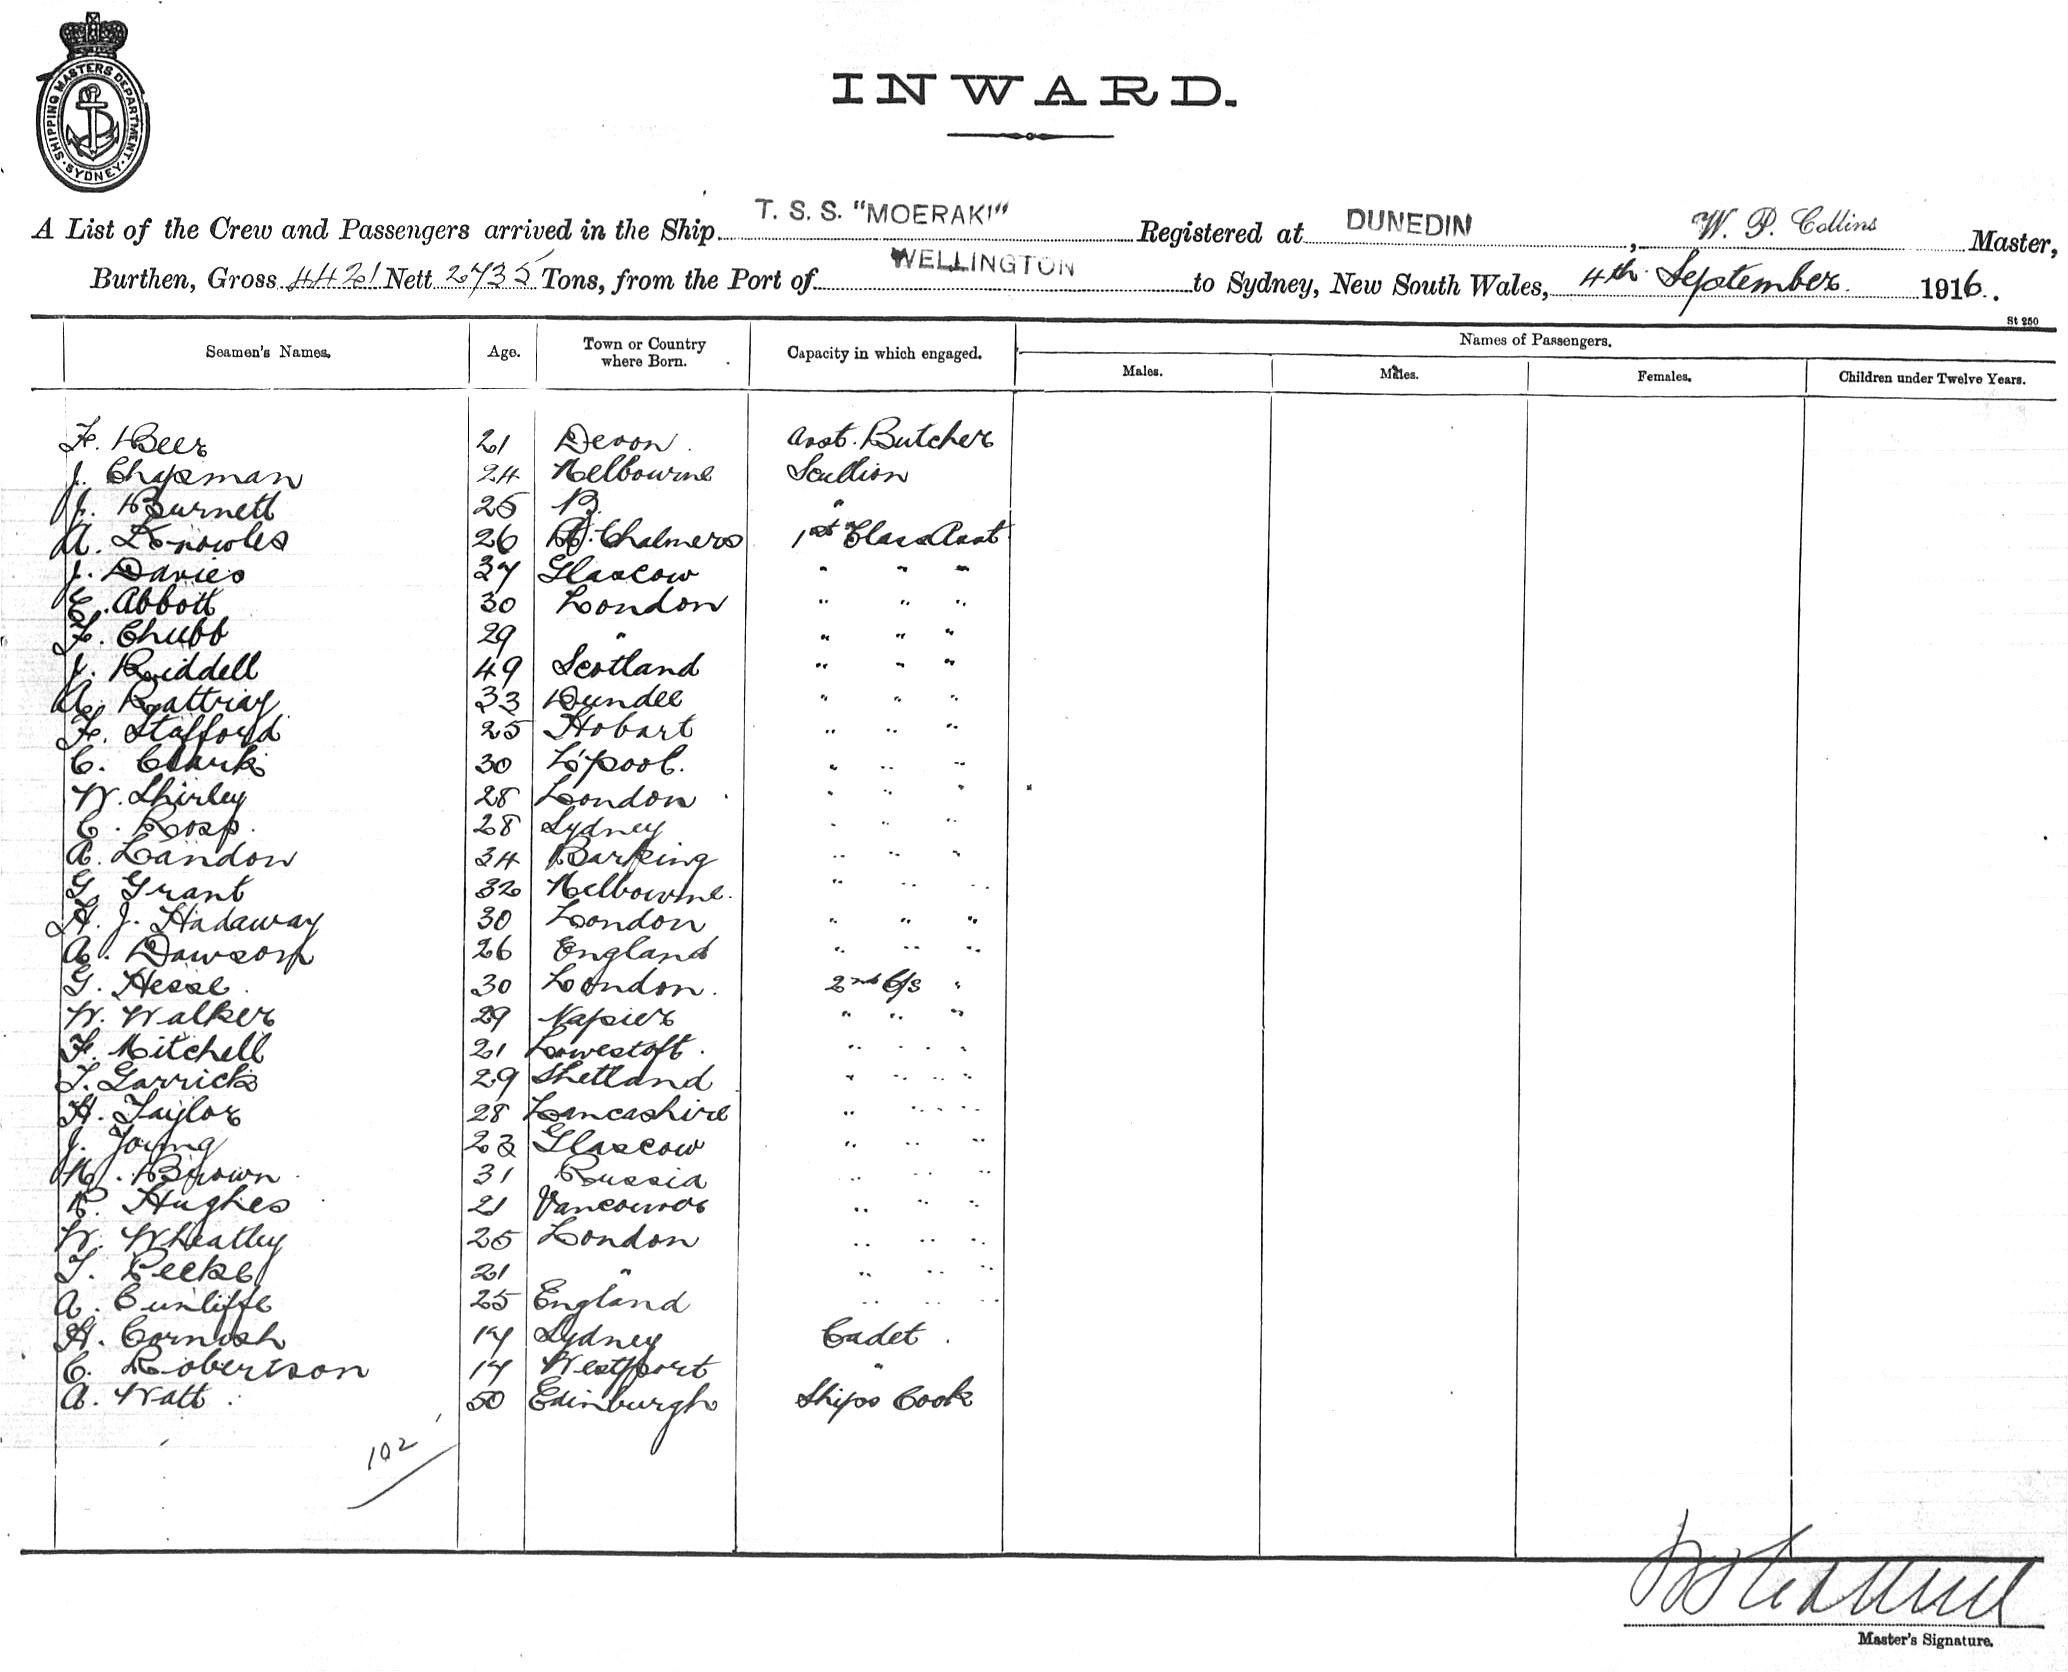 SHIPPING MASTERS DEPARTMENT. SYDNEY
INWARD.
A List of the Crew and Passengers arrived in the Ship T. S. S. "MOERAKI" Registered at DUNEDIN, W. P. Collins Master,
Burthen, Gross 4421 Nett 2735 Tons, from the Port of WELLINGTON to Sydney, New South Wales, 4th September 1916.
St 250
Seamen's Names. Age. Town or Country where Born. Capacity in which engaged. Names of Passengers.
Males. Males. Females. Children under Twelve Years.
F. Beer 21 Devon Asst. Butcher
J. Chapman 24 Melbourne Scullion
J. Burnett 25 "
A. Knowles 26 Pt. Chalmers 1st Class Asst
J. Davies 37 Glascow " " "
E. Abbott 30 London " " "
F. Chubb 29 " " " "
J. Riddell 49 Scotland " " "
A. Rattray 33 Dundee " " "
F. Stafford 25 Hobart " " "
C. Clark 30 L'pool. " " "
W. Shirley 28 London " " "
C. Ross. 28 Sydney " " "
A. Landon 34 Barking " " "
G. Grant 32 Melbourne. " " "
H. J. Hadaway 30 London " " "
A. Dawson 26 England " " "
G. Hesse 30 London. 2nd C/s "
W. Walker 29 Napier " " "
F. Mitchell 21 Lowestoft. " " "
T. Garrick 29 Shetland " " "
H. Taylor 28 Lancashire " " "
J. Young 23 Glascow " " "
N. Brown 31 Russia " "
R. Hughes 21 Vancouver " " "
W. Wheatley 25 London " " "
T. 21 " " " "
A. Cunliffe 25 England " " "
H. Cornish 17 Sydney Cadet.
C. Robertson 17 Westport "
A. Watt 50 Edinburgh Ships Cook
102
Master's Signature.